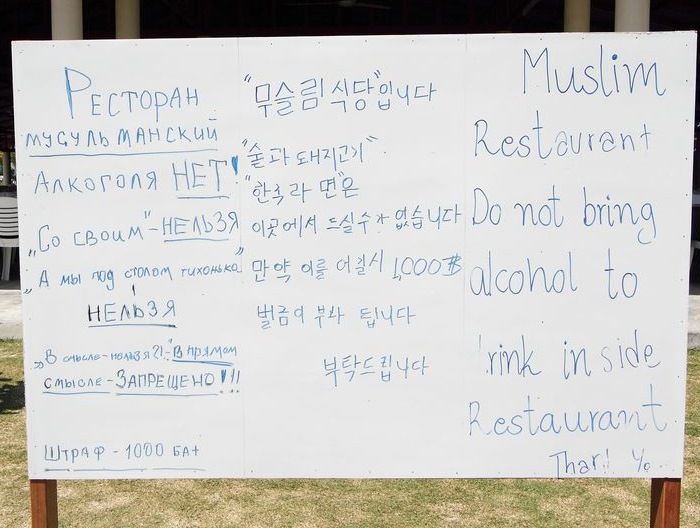 РЕСТОРАН
МУСУЛЬМАНСКИЙ
АЛКОГОЛЯ НЕТ!
„СО СВОИМ" - НЕЛЬЗЯ
„А МЫ ПОД СТОЛОМ ТИХОНЬКО"
НЕЛЬЗЯ
„В СМЫСЛЕ - НЕЛЬЗЯ?!" - В ПРЯМОМ
СМЫСЛЕ - ЗАПРЕЩЕНО!!!
ШТРАФ - 1000 БАТ
"무슬림 식당"입니다
"술과 돼지고기"
"한국라면"은
이곳에서 드실수가 없습니다
만약 이를 어길시 1,000฿
벌금이 부과 됩니다
부탁드립니다
Muslim
Restaurant
Do not bring
alcohol to
rink inside
Restaurant